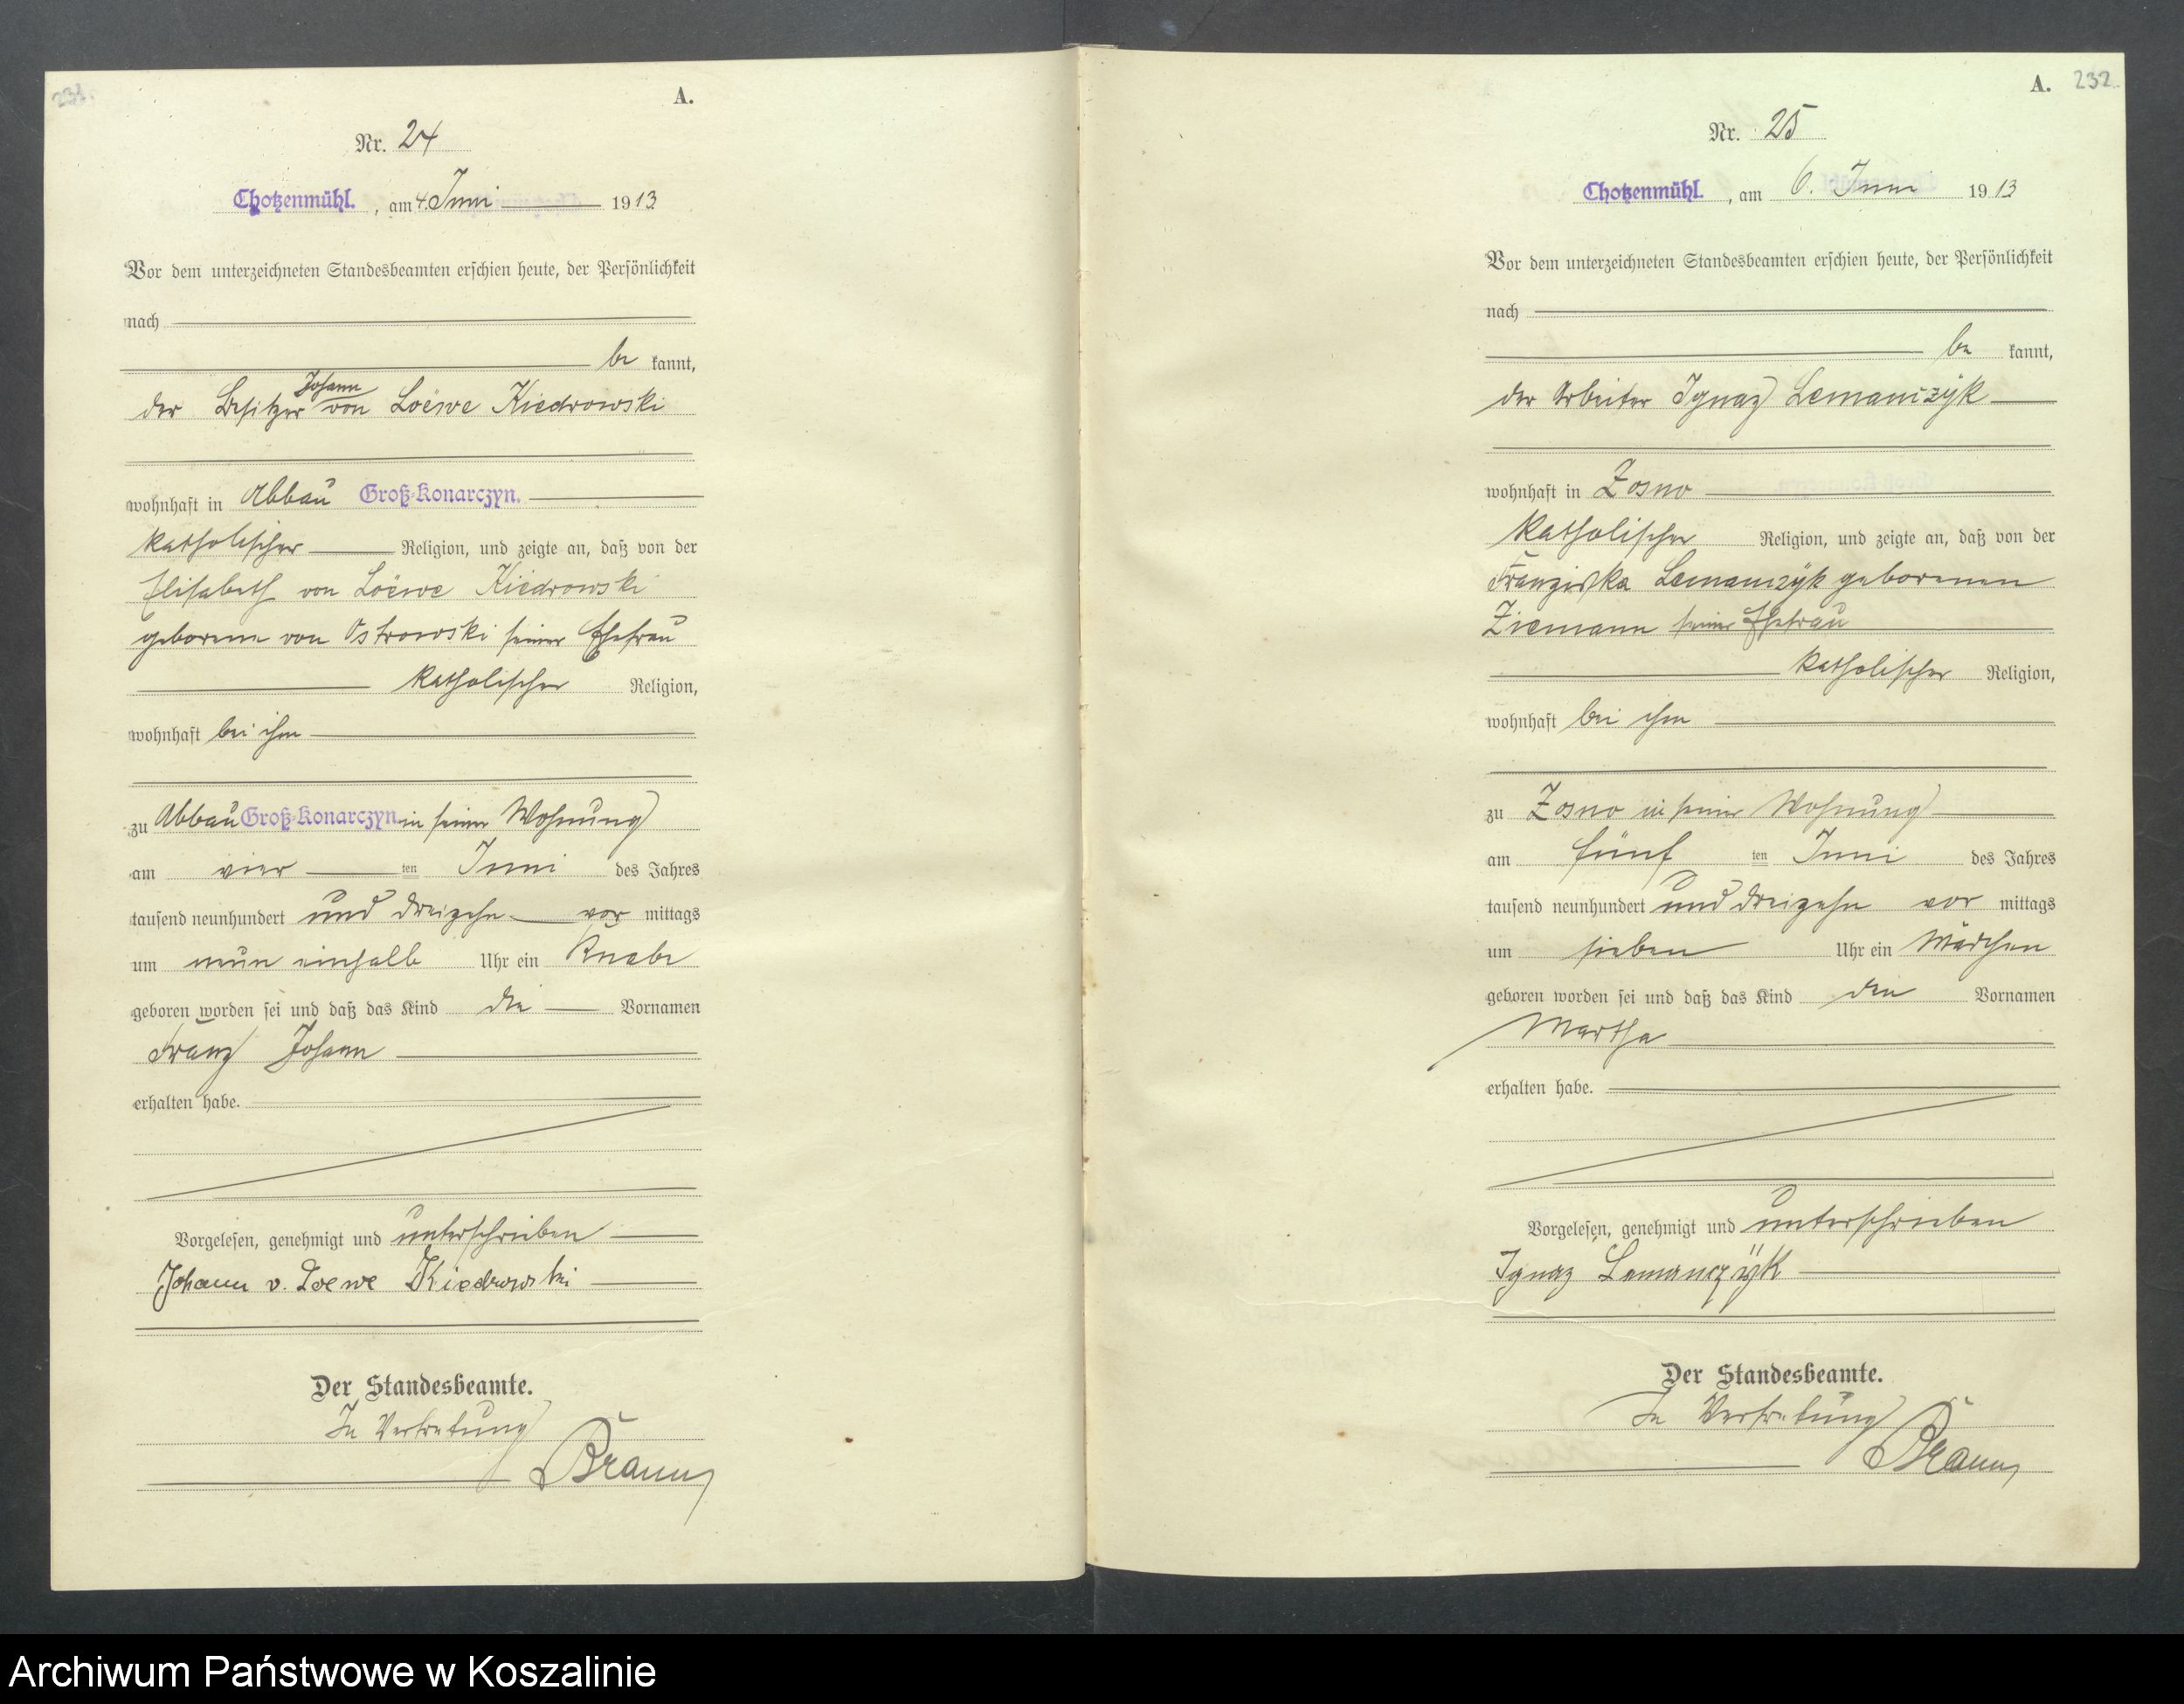 231.
A.
Nr. 24
Chotzenmühl. , am 4. Juni 1913
Vor dem unterzeichneten Standesbeamten erschien heute, der Persönlichkeit
nach
be kannt,
Johann
der Besitzer von Loëwe Kiedrowski
wohnhaft in Abbau Groß-Konarczyn.
katholischer Religion, und zeigte an, daß von der
Elisabeth von Loëwe Kiedrowski
geborene von Ostrowski seiner Ehefrau
katholischer Religion,
wohnhaft bei ihm
zu Abbau Groß-Konarczyn in seiner Wohnung
am vier ten Juni des Jahres
tausend neunhundert und dreizehn vor mittags
um neun einhalb Uhr ein Knabe
geboren worden sei und daß das Kind die Vornamen
Franz Johann
erhalten habe.
Vorgelesen, genehmigt und unterschrieben
Johann v. Loewe Kiedrowski
Der Standesbeamte.
In Vertretung
Braun
A. 232.
Nr. 25
Chotzenmühl. , am 6. Juni 1913
Vor dem unterzeichneten Standesbeamten erschien heute, der Persönlichkeit
nach
be kannt,
der Arbeiter Ignaz Lemanczÿk
wohnhaft in Zosno
katholischer Religion, und zeigte an, daß von der
Franziska Lemanczÿk geborenen
Ziemann seiner Ehefrau
katholischer Religion,
wohnhaft bei ihm
zu Zosno in seiner Wohnung
am fünf ten Juni des Jahres
tausend neunhundert und dreizehn vor mittags
um sieben Uhr ein Mädchen
geboren worden sei und daß das Kind den Vornamen
Martha
erhalten habe.
Vorgelesen, genehmigt und unterschrieben
Ignaz Lemanczÿk
Der Standesbeamte.
In Vertretung
Braun
Archiwum Państwowe w Koszalinie